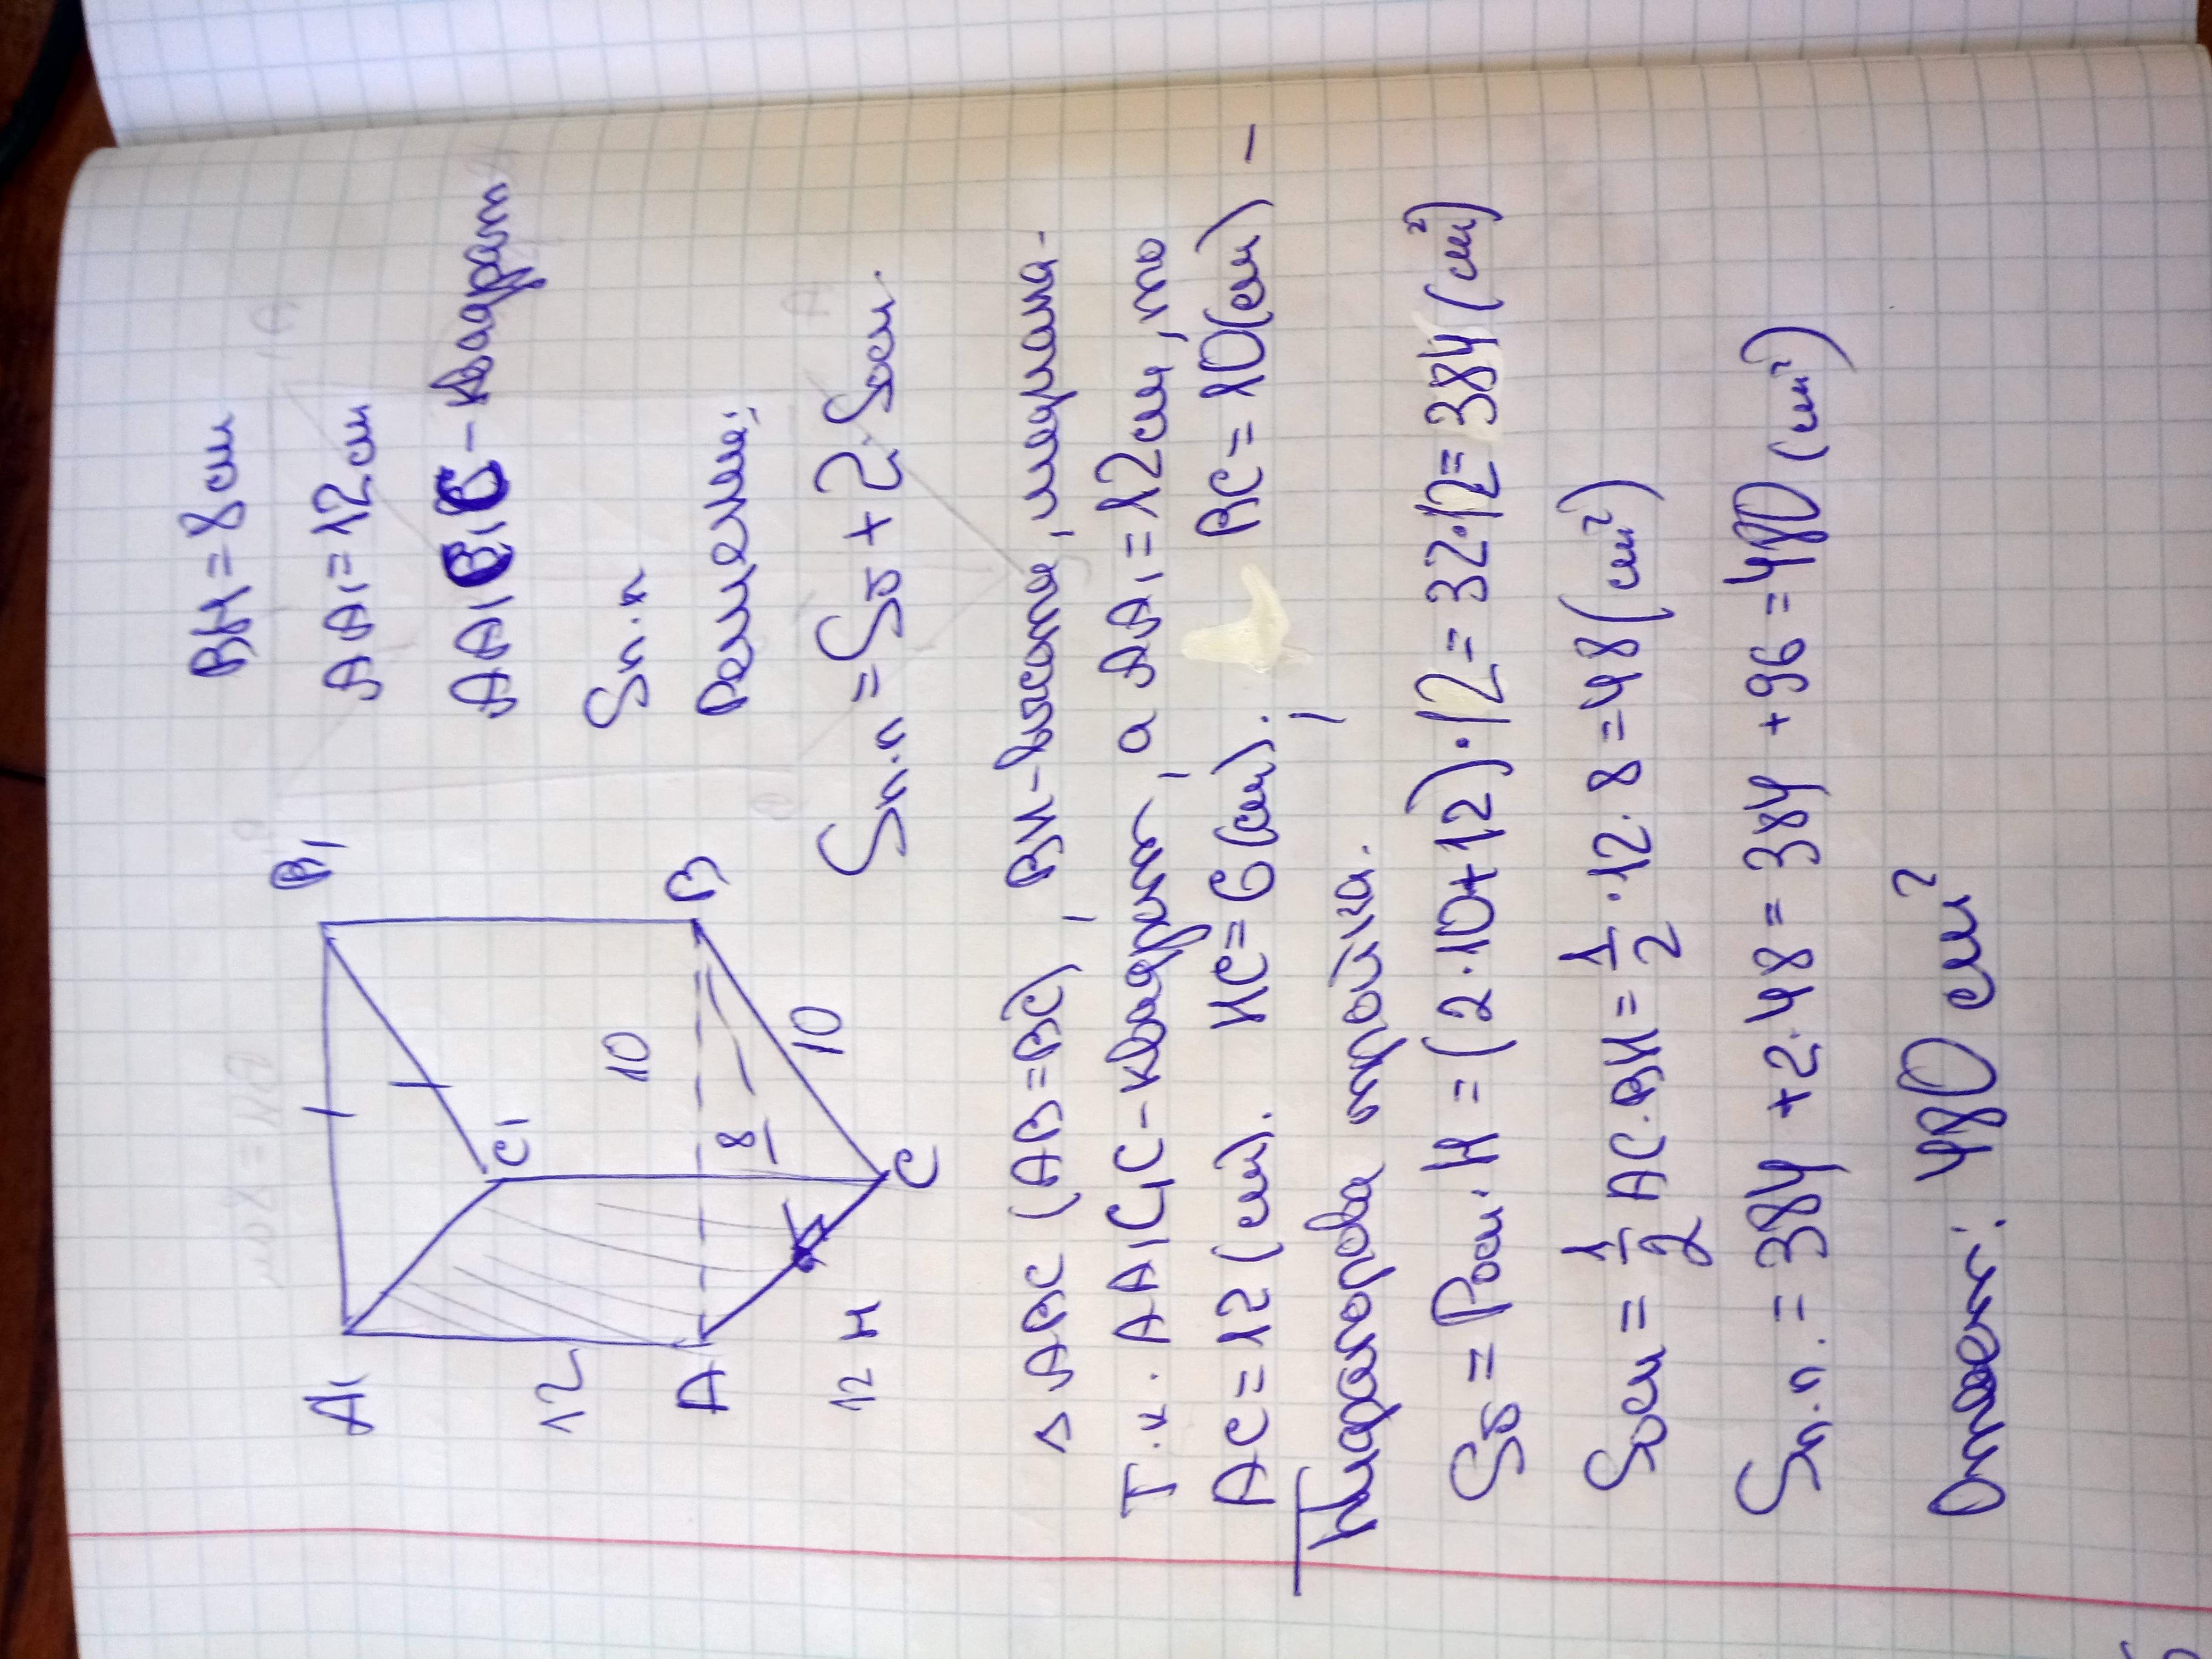 BH = 8 см
AA₁ = 12 см
AA₁C₁C - квадрат
Sп.п
Решение:
A₁
B₁
C₁
12
10
A
B
8
10
12
H
C
Sп.п = Sб + 2·Sосн.
△ ABC (AB = BC), BH - высота, медиана -
Т.к. AA₁C₁C - квадрат, а AA₁ = 12 см, то
AC = 12 (см). HC = 6 (см). BC = 10 (см) -
Пифагорова тройка.
Sб = Pосн. H = (2·10+12)·12 = 32·12 = 384 (см²)
Sосн = 1/2 AC·BH = 1/2·12·8 = 48 (см²)
Sп.п. = 384 + 2·48 = 384 + 96 = 480 (см²)
Ответ: 480 см²